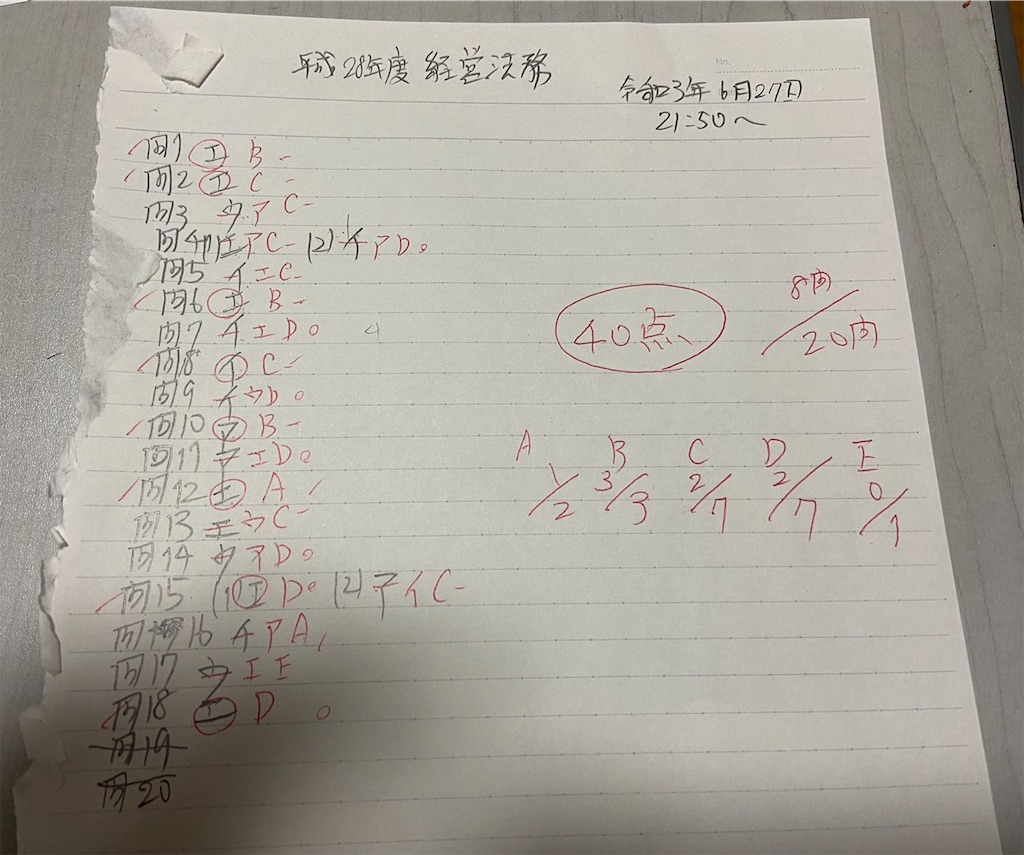 平成28年度 経営法務
No.
令和3年6月27日
21:50〜
問1 エ B -
問2 エ C -
問3 ウ ア C -
問4(1) エ ア C - (2) イ ア D 。
問5 イ エ C -
問6 エ B -
問7 イ エ D 。
問8 イ C -
問9 イ ウ D 。
問10 ア B -
問11 ア エ D 。
問12 エ A /
問13 エ ウ C -
問14 ウ ア D 。
問15 (1) エ D 。 (2) ア イ C -
問16 イ ア A /
問17 ウ エ E
問18 エ D 。
問19
問20
40点
8問/20問
A B C D E
1/2 3/3 2/7 2/7 0/1